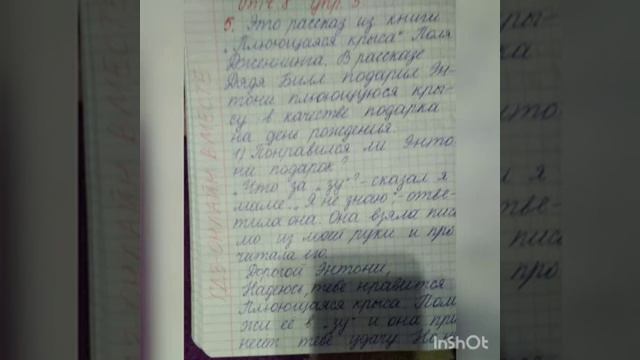 5. Это рассказ из книги
„Плюющаяся крыса" Поля
Дженнинга. В рассказе
Дядя Билл подарил Эн-
тони плюющуюся кры-
су в качестве подарка
на день рождения.
1) Понравился ли Энто-
ни подарок?
„Что за „зу"?- сказал я
маме. „Я не знаю"-отве-
тила она. Она взяла пись
мо из моей руки и про
читала его.
Дорогой Энтони,
Надеюсь, тебе нравится
Плюющаяся крыса. Поло
жи её в „зу" и она при
несёт тебе удачу
InShOt